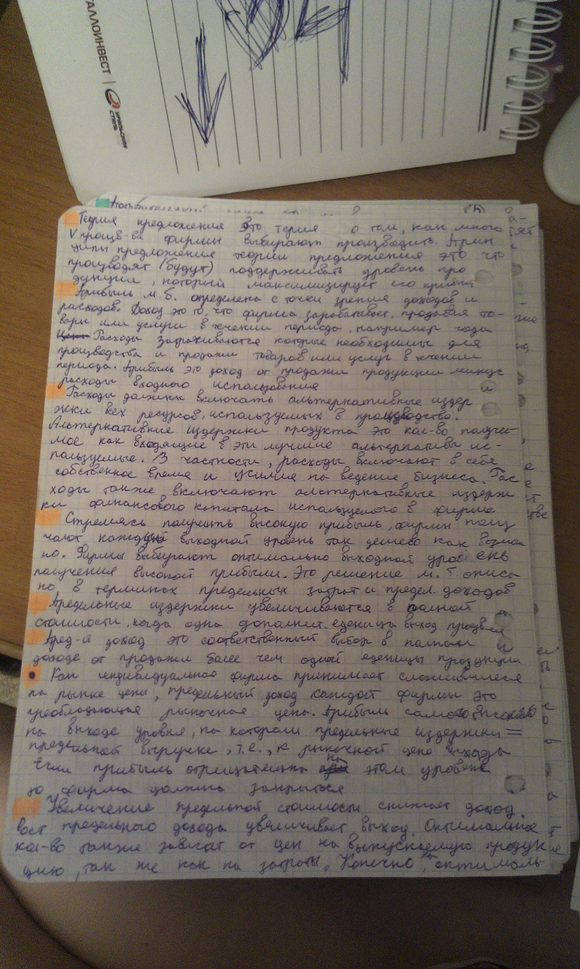 ТАЛЛОИНВЕСТ
УРАЛЬСКАЯ СТАЛЬ
Теория предложения это терия о том, как много
V произв-ва фирмы выбирают производить. Прин
ципы предложения теории предложения это что
производят (будут) поддерживать уровень про
дукции, который максимизирует его прибыль
Прибыль м.б. определена с точки зрения доходов и
расходов. Доход это то, что фирма зарабатывает, продавая то-
вары или услуги в течении периода, например года
Расходы затрачиваются которые необходимы для
производства и продажи товаров или услуг в течении
периода. Прибыль это доход от продажи продукции минус
расходы входного использования
Расходы должны включать альтернативные издер
жки всех ресурсов, используемых в производстве.
Альтернативные издержки продукта это кол-во получе-
мое как входящие в эти лучшие альтернативы ис-
пользуемые. В частности, расходы включают в себя
собственное время и усилия на ведение бизнеса. Рас
ходы также включают альтернативные издерж
ки финансового капитала используемого в фирме
Стремясь получить высокую прибыль, фирмы полу
чают каждый выходной уровень так дешево как возмож
но. Фирмы выбирают оптимально выходной уровень
получения высокой прибыли. Это решение м.б. описа
но в терминах предельных затрат и предел. доходов
Предельные издержки увеличиваются в полной
стоимости, когда одна дополнит. еденица выход произвел
Пред-й доход это соответственный выбор в полном
доходе от продажи более чем одной еденицы продукции
Как индивидуальная фирма принимает сложившиеся
на рынке цены, предельный доход каждой фирмы это
преобладающая рыночная цена. Прибыль самая высокая
на выходе уровня, на котором предельные издержки =
предельной выручке, т.е., к рыночной цене выхода
Если прибыль отрицательна на этом уровне
то фирма должна закрыться
Увеличение предельной стоимости снижает доход.
Рост предельного дохода увеличивает выход. Оптимальное
кол-во также зависит от цен на выпускаемую продук
цию, так же как на затраты. Конечно, оптималь